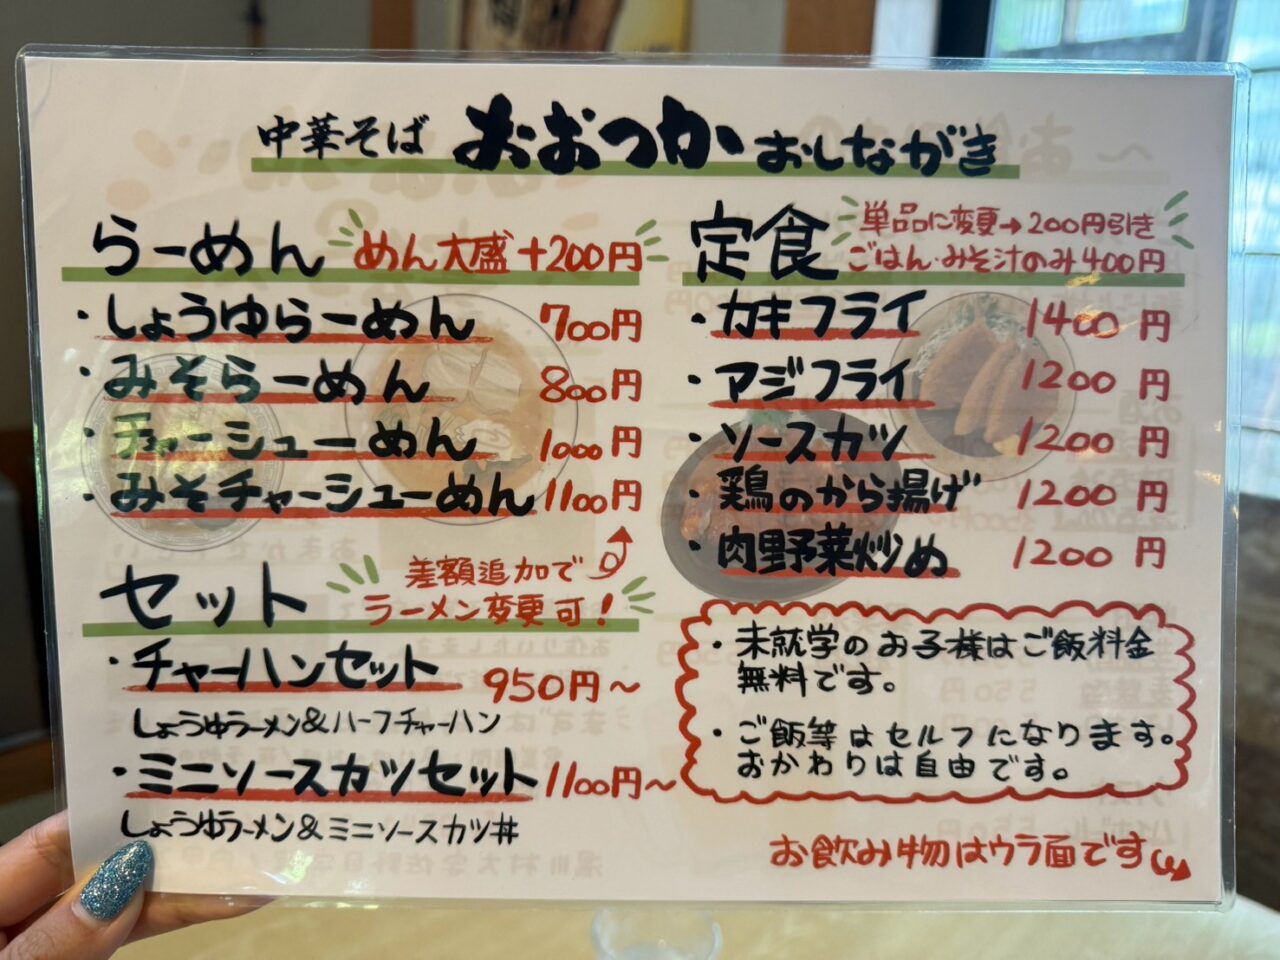 中華そば おおつか おしながき
らーめん めん大盛+200円
・しょうゆらーめん 700円
・みそらーめん 800円
・チャーシューめん 1000円
・みそチャーシューめん 1100円
差額追加で
ラーメン変更可!
セット
・チャーハンセット 950円~
しょうゆラーメン&ハーフチャーハン
・ミニソースカツセット 1100円~
しょうゆラーメン&ミニソースカツ丼
定食
単品に変更→200円引き
ごはん・みそ汁のみ400円
・カキフライ 1400円
・アジフライ 1200円
・ソースカツ 1200円
・鶏のから揚げ 1200円
・肉野菜炒め 1200円
・未就学のお子様はご飯料金
無料です。
・ご飯等はセルフになります。
おかわりは自由です。
お飲み物はウラ面です